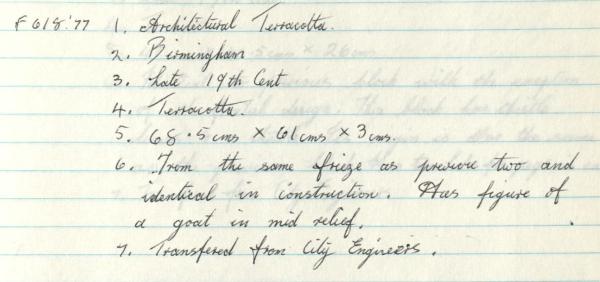 F618'77 1. Architectural Terracotta.
2. Birmingham
3. Late 19th Cent
4. Terracotta.
5. 68.5cms × 61cms × 3cms.
6. From the same frieze as previous two and
identical in construction. Has figure of
a goat in mid relief.
7. Transfered from City Engineers.